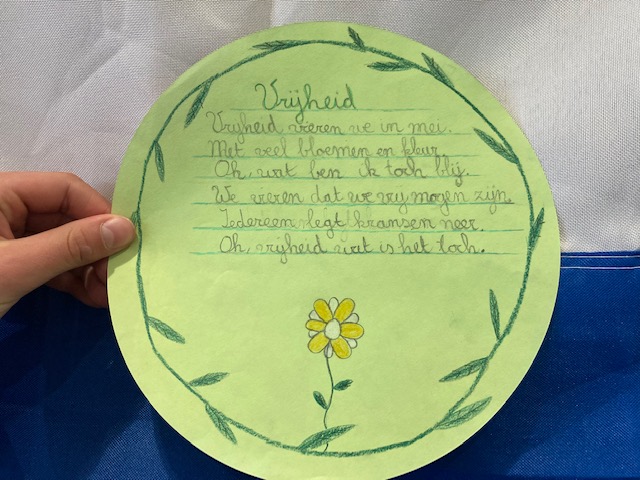 Vrijheid
Vrijheid vieren we in mei.
Met veel bloemen en kleur
Oh, wat ben ik toch blij.
We vieren dat we vrij mogen zijn.
Iedereen legt kransen neer.
Oh, vrijheid wat is het toch.